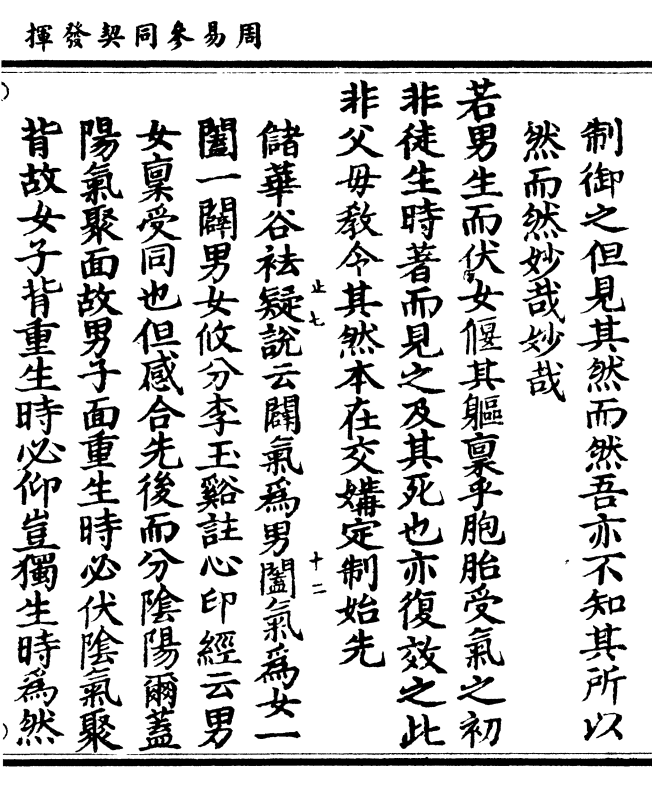 周易參同契發揮
制御之但見其然而然吾亦不知其所以
然而然妙哉妙哉
若男生而伏女偃其軀稟乎胞胎受氣之初
非徒生時著而見之及其死也亦復效之此
非父毋教令其然本在交媾定制始先
止七
十二
儲華谷袪疑說云闢氣爲男闔氣爲女一
闔一闢男女攸分李玉谿註心印經云男
女稟受同也但感合先後而分陰陽爾蓋
陽氣聚面故男子面重生時必伏陰氣聚
背故女子背重生時必仰豈獨生時爲然